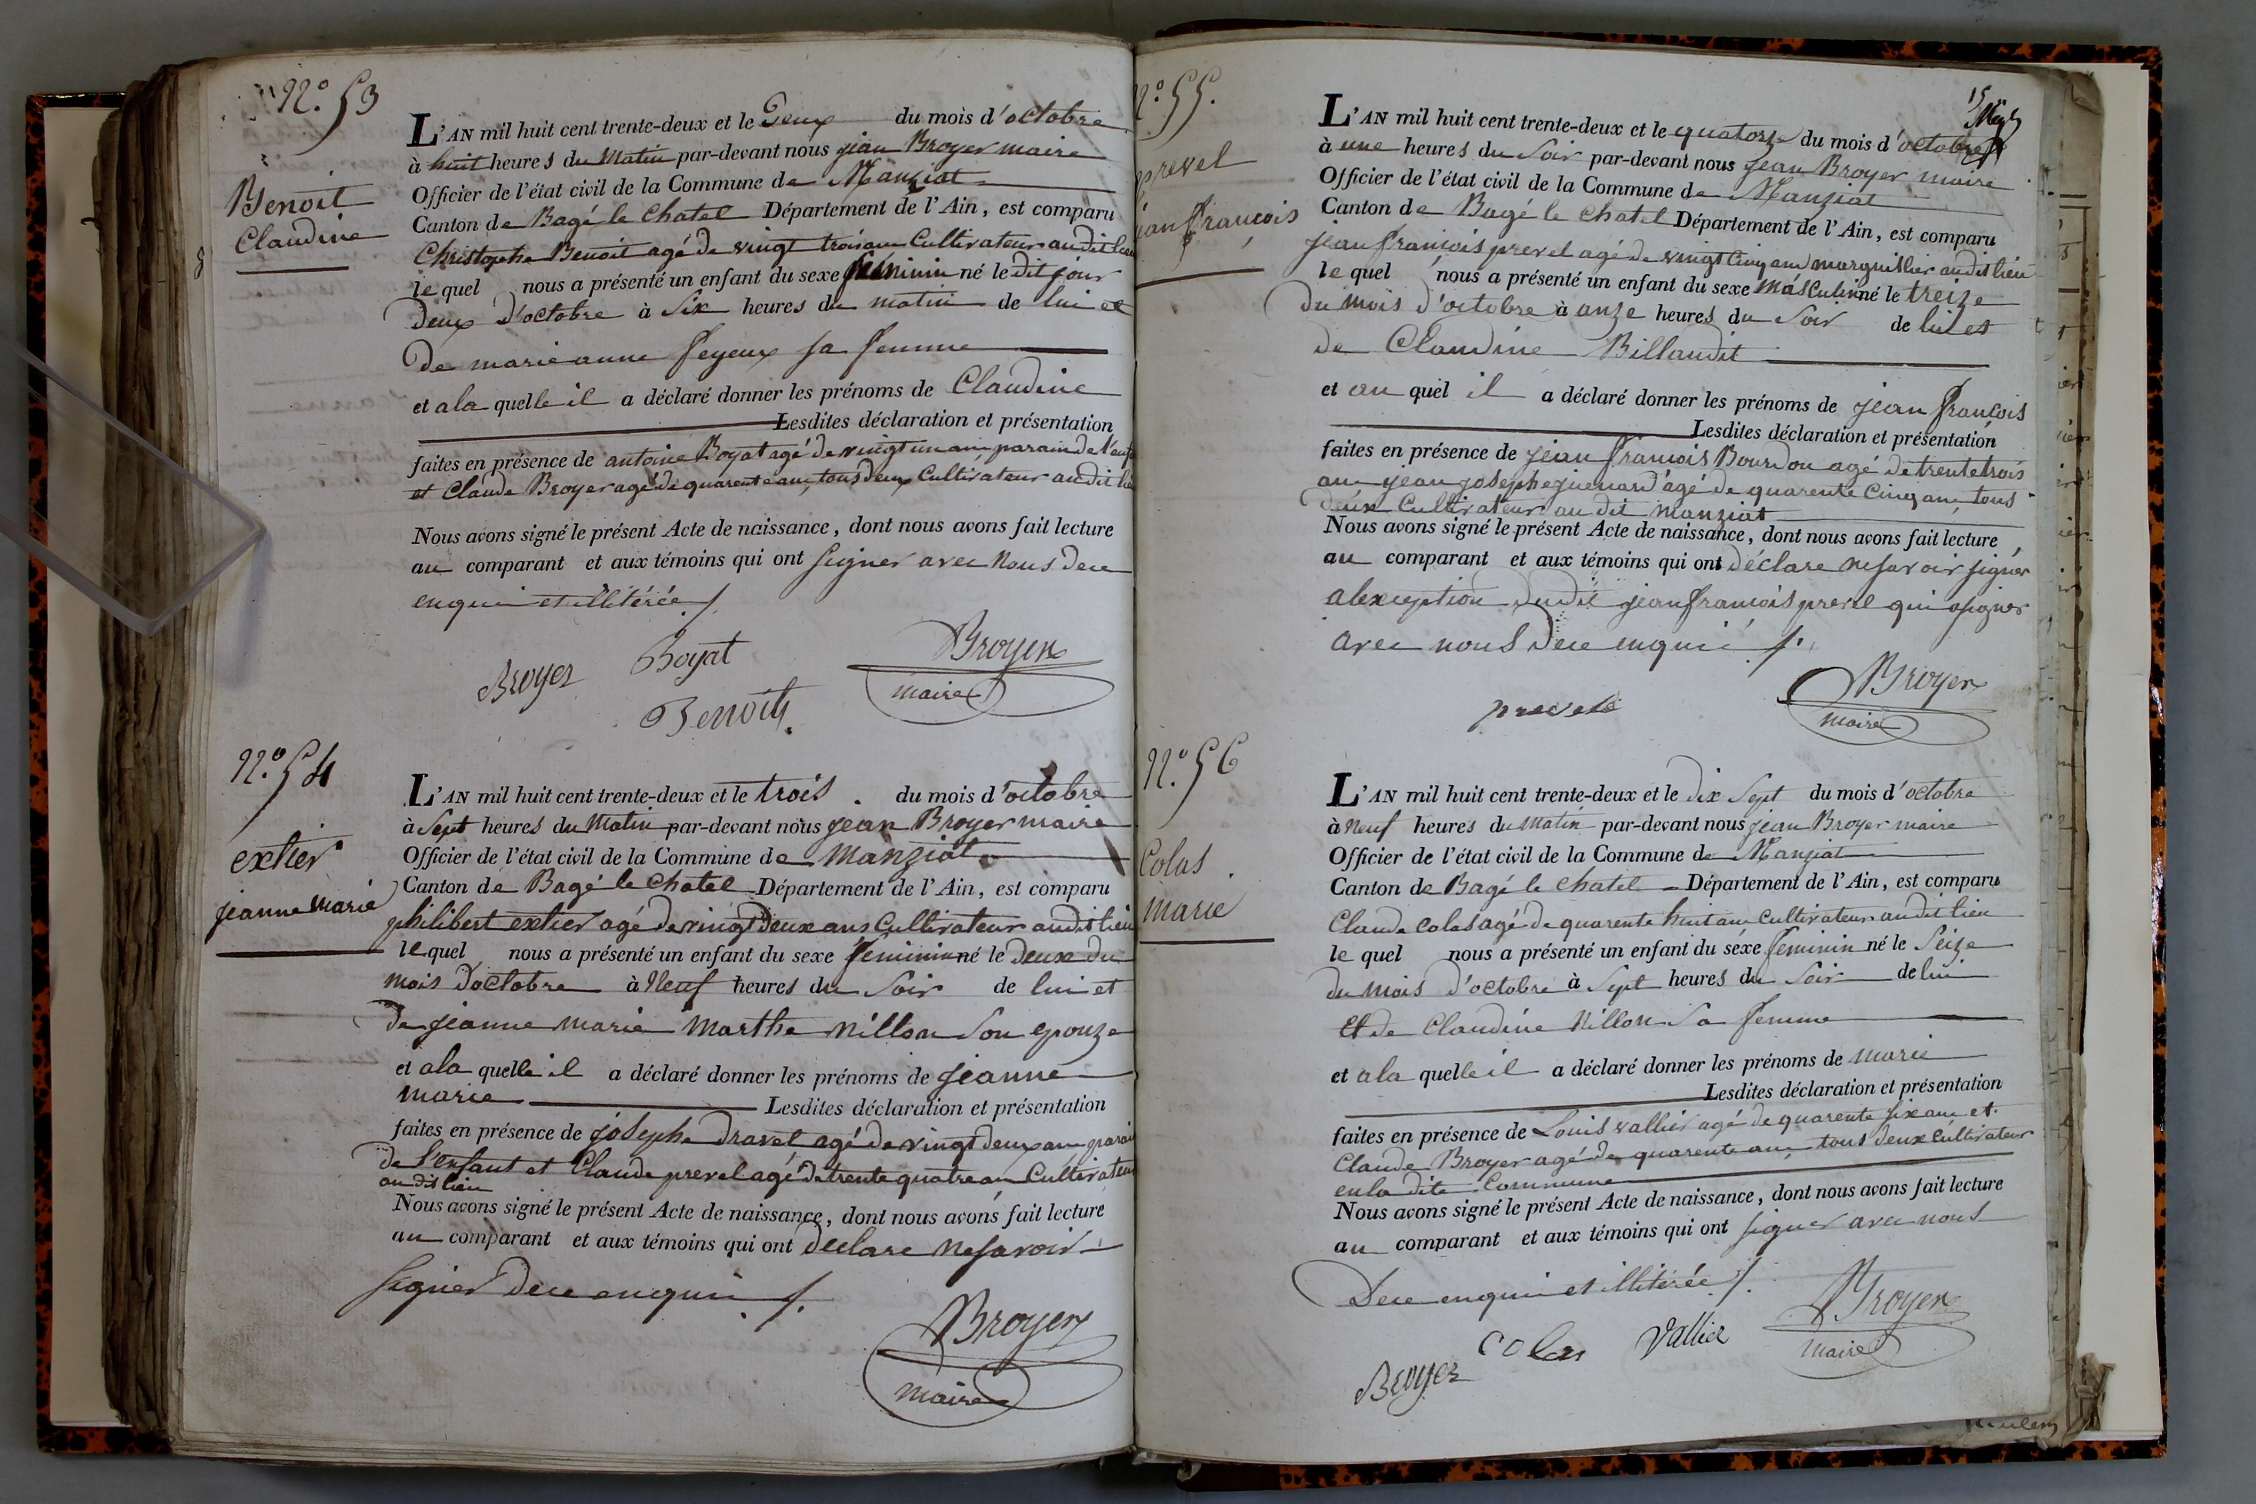 N.° 53
Benoit
Claudine
L'AN mil huit cent trente-deux et le Deux du mois d'octobre
à huit heures du Matin par-devant nous jean Broyer maire
Officier de l'état civil de la Commune de Manziat
Canton de Bagé le Chatel Département de l'Ain, est comparu
Christophe Benoit agé de vingt trois ans Cultivateur au dit lieu
le quel nous a présenté un enfant du sexe féminin né le dit jour
deux d'octobre à Six heures du matin de lui et
de marie anne feyeux sa femme
et a la quelle il a déclaré donner les prénoms de Claudine
Lesdites déclaration et présentation
faites en présence de antoine Boyat agé de vingt un ans, parain de l'enf
et Claude Broyer agé de quarente ans, tous deux Cultivateur au dit li
Nous avons signé le présent Acte de naissance, dont nous avons fait lecture
au comparant et aux témoins qui ont signer avec nous dece
enquis et illitérée
Broyer
Boyat
Broyer
maire
Benoit
N.° 54
extier
jeanne marie
L'AN mil huit cent trente-deux et le trois du mois d'octobre
à Sept heures du Matin par-devant nous jean Broyer maire
Officier de l'état civil de la Commune de Manziat
Canton de Bagé le Chatel Département de l'Ain, est comparu
philibert extier agé de vingt deux ans Cultivateur au dit lieu
le quel nous a présenté un enfant du sexe féminin né le deux du
mois d'octobre à Neuf heures du Soir de lui et
de jeanne marie Marthe Nillon Son epouze
et a la quelle il a déclaré donner les prénoms de jeanne
marie Lesdites déclaration et présentation
faites en présence de josephe dravet agé de vingt deux ans parai
de l'enfant et Claude prevel agé de trente quatre an Cultivateur
au dit lieu
Nous avons signé le présent Acte de naissance, dont nous avons fait lecture
au comparant et aux témoins qui ont déclare ne savoir
signer dece enquis
Broyer
maire
N.° 55.
prevel
jean françois
15
L'AN mil huit cent trente-deux et le quatorze du mois d'octobre
à une heures du Soir par-devant nous jean Broyer maire
Officier de l'état civil de la Commune de Manziat
Canton de Bagé le chatel Département de l'Ain, est comparu
jean francois prevel agé de vingt cinq ans marguillier au dit lieu
le quel nous a présenté un enfant du sexe Masculin né le treize
du mois d'octobre à onze heures du Soir de lui et
de Claudine Billaudit
et au quel il a déclaré donner les prénoms de jean françois
Lesdites déclaration et présentation
faites en présence de jean francois Bourdon agé de trente trois
ans jean josephe guenard agé de quarente Cinq ans, tous
deux Cultivateur au dit Manziat
Nous avons signé le présent Acte de naissance, dont nous avons fait lecture
au comparant et aux témoins qui ont déclare ne savoir signer
alexception dudit jean francois prevel qui asigner
avec nous dece enquis
prevel
Broyer
maire
N.° 56
Colas
marie
L'AN mil huit cent trente-deux et le dix Sept du mois d'octobre
à Neuf heures du Matin par-devant nous jean Broyer maire
Officier de l'état civil de la Commune de Manziat
Canton de Bagé le chatel Département de l'Ain, est comparu
Claude colas agé de quarente huit ans Cultivateur au dit lieu
le quel nous a présenté un enfant du sexe féminin né le Seize
du mois d'octobre à Sept heures du Soir de lui
et de Claudine Nillon Sa femme
et a la quelle il a déclaré donner les prénoms de marie
Lesdites déclaration et présentation
faites en présence de Louis vallier agé de quarente six ans et
Claude Broyer agé de quarente ans, tous deux cultivateur
en la dite Commune
Nous avons signé le présent Acte de naissance, dont nous avons fait lecture
au comparant et aux témoins qui ont signer avec nous
Dece enquis et illitérée
Broyer
colas
Vallier
Broyer
maire